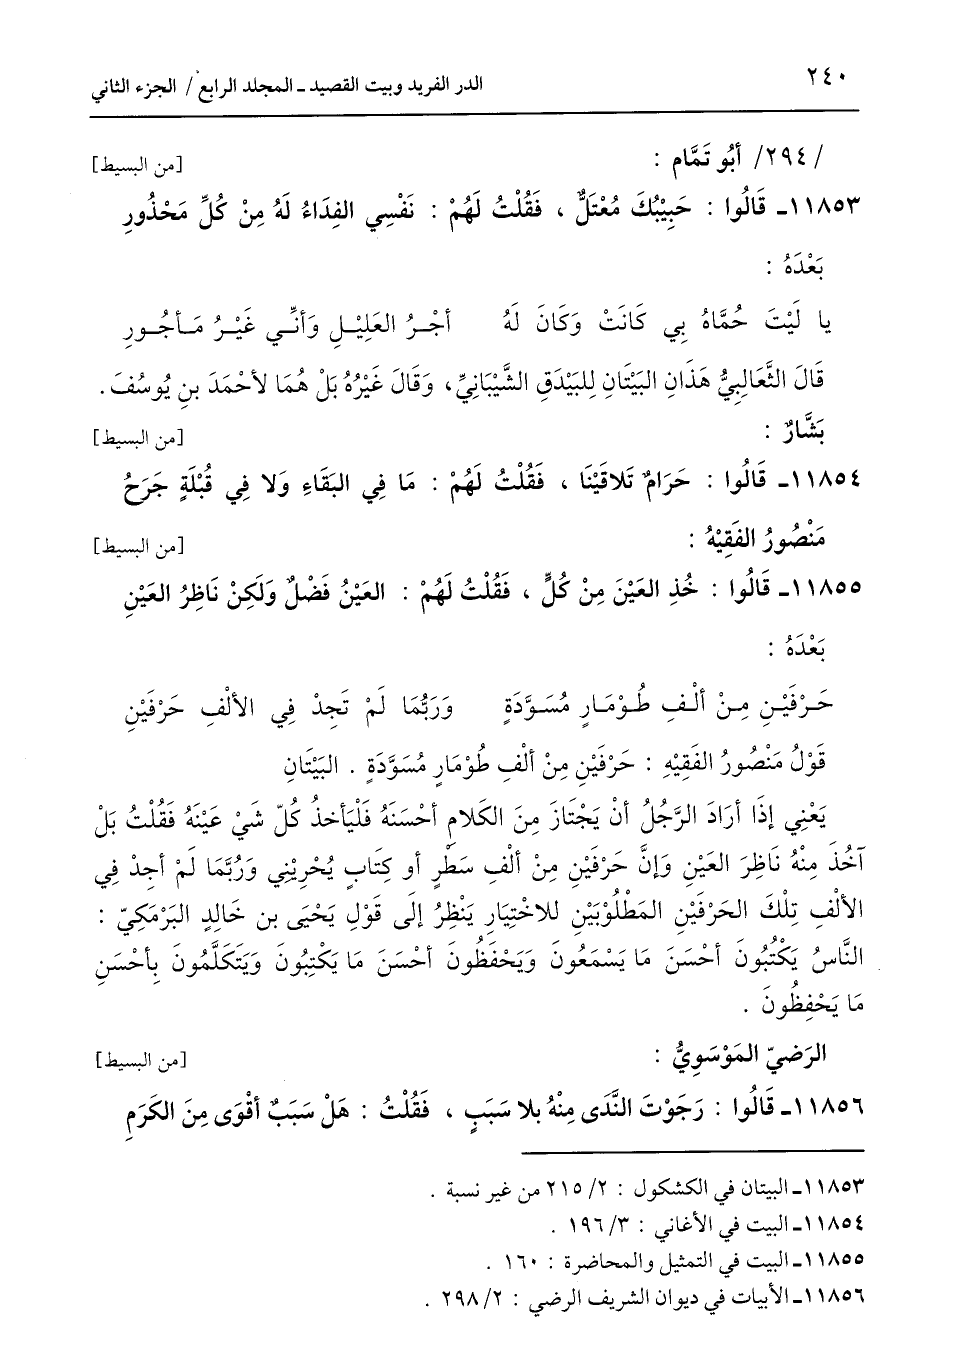 ٢٤٠ الدر الفريد وبيت القصيد ـ المجلد الرابع / الجزء الثاني
/٢٩٤/ أَبُو تَمَّام : [من البسيط]
١١٨٥٣ـ قَالُوا : حَبِيْبُكَ مُعْتَلٌّ ، فَقُلْتُ لَهُمْ : نَفْسِي الفِدَاءُ لَهُ مِنْ كُلِّ مَحْذُورِ
بَعْدَهُ :
يا لَيْتَ حُمَّاهُ بِي كَانَتْ وَكَانَ لَهُ أَجْرُ العَلِيْلِ وَأَنِّي غَيْرُ مَأجُورِ
قَالَ الثَّعَالِبِيُّ هَذَانِ البَيْتَانِ لِلبَيْدَقِ الشَّيْبَانِيِّ، وَقَالَ غَيْرُهُ بَلْ هُمَا لأَحْمَدَ بنِ يُوسُفَ.
بَشَّارٌ : [من البسيط]
١١٨٥٤ـ قَالُوا : حَرَامٌ تَلاقَيْنَا ، فَقُلْتُ لَهُمْ : مَا فِي البَقَاءِ وَلا فِي قُبْلَةٍ حَرَجُ
مَنْصُورُ الفَقِيْهُ : [من البسيط]
١١٨٥٥ـ قَالُوا : خُذِ العَيْنَ مِنْ كُلٍّ ، فَقُلْتُ لَهُمْ : العَيْنُ فَضْلٌ وَلَكِنْ نَاظِرُ العَيْنِ
بَعْدَهُ :
حَرْفَيْنِ مِنْ أَلْفِ طُوْمَارٍ مُسَوَّدَةٍ وَرَبُّمَا لَمْ تَجِدْ فِي الأَلْفِ حَرْفَيْنِ
قَوْلُ مَنْصُورُ الفَقِيْهِ : حَرْفَيْنِ مِنْ أَلْفِ طُوْمَارٍ مُسَوَّدَةٍ . البَيْتَانِ
يَعْنِي إِذَا أَرَادَ الرَّجُلُ أَنْ يَجْتَازَ مِنَ الكَلَامِ أَحْسَنَهُ فَلْيَأخذُ كُلّ شَيْ عَيْنَهُ فَقُلْتُ بَلْ
آخُذَ مِنْهُ نَاظِرَ العَيْنِ وَإِنَّ حَرْفَيْنِ مِنْ أَلْفِ سَطْرٍ أو كِتَابٍ يُحْرِيْنِي وَرُبَّمَا لَمْ أجِدْ فِي
الأَلْفِ تِلْكَ الحَرْفَيْنِ المَطْلُوْبَيْنِ للاخْتِيَارِ يَنْظِرُ إِلَى قَوْلِ يَحْيَى بن خَالِدٍ البَرْمَكِيّ :
النَّاسُ يَكْتُبُونَ أَحْسَنَ مَا يَسْمَعُونَ وَيَحْفَظُونَ أَحْسَنَ مَا يَكْتِبُونَ وَيَتَكَلَّمُونَ بِأَحْسَنِ
مَا يَحْفِظُونَ .
الرَضيّ المَوْسَوِيُّ : [من البسيط]
١١٨٥٦ـ قَالُوا : رَجَوْتَ النَّدَى مِنْهُ بلا سَبَبٍ ، فَقُلْتُ : هَلْ سَبَبٌ أَقْوَى مِنَ الكَرَمِ
١١٨٥٣ـ البيتان في الكشكول : ٢/ ٢١٥ من غير نسبة .
١١٨٥٤ـ البيت في الأغاني : ٣/ ١٩٦ .
١١٨٥٥ـ البيت في التمثيل والمحاضرة : ١٦٠ .
١١٨٥٦ـ الأبيات في ديوان الشريف الرضي : ٢/ ٢٩٨ .